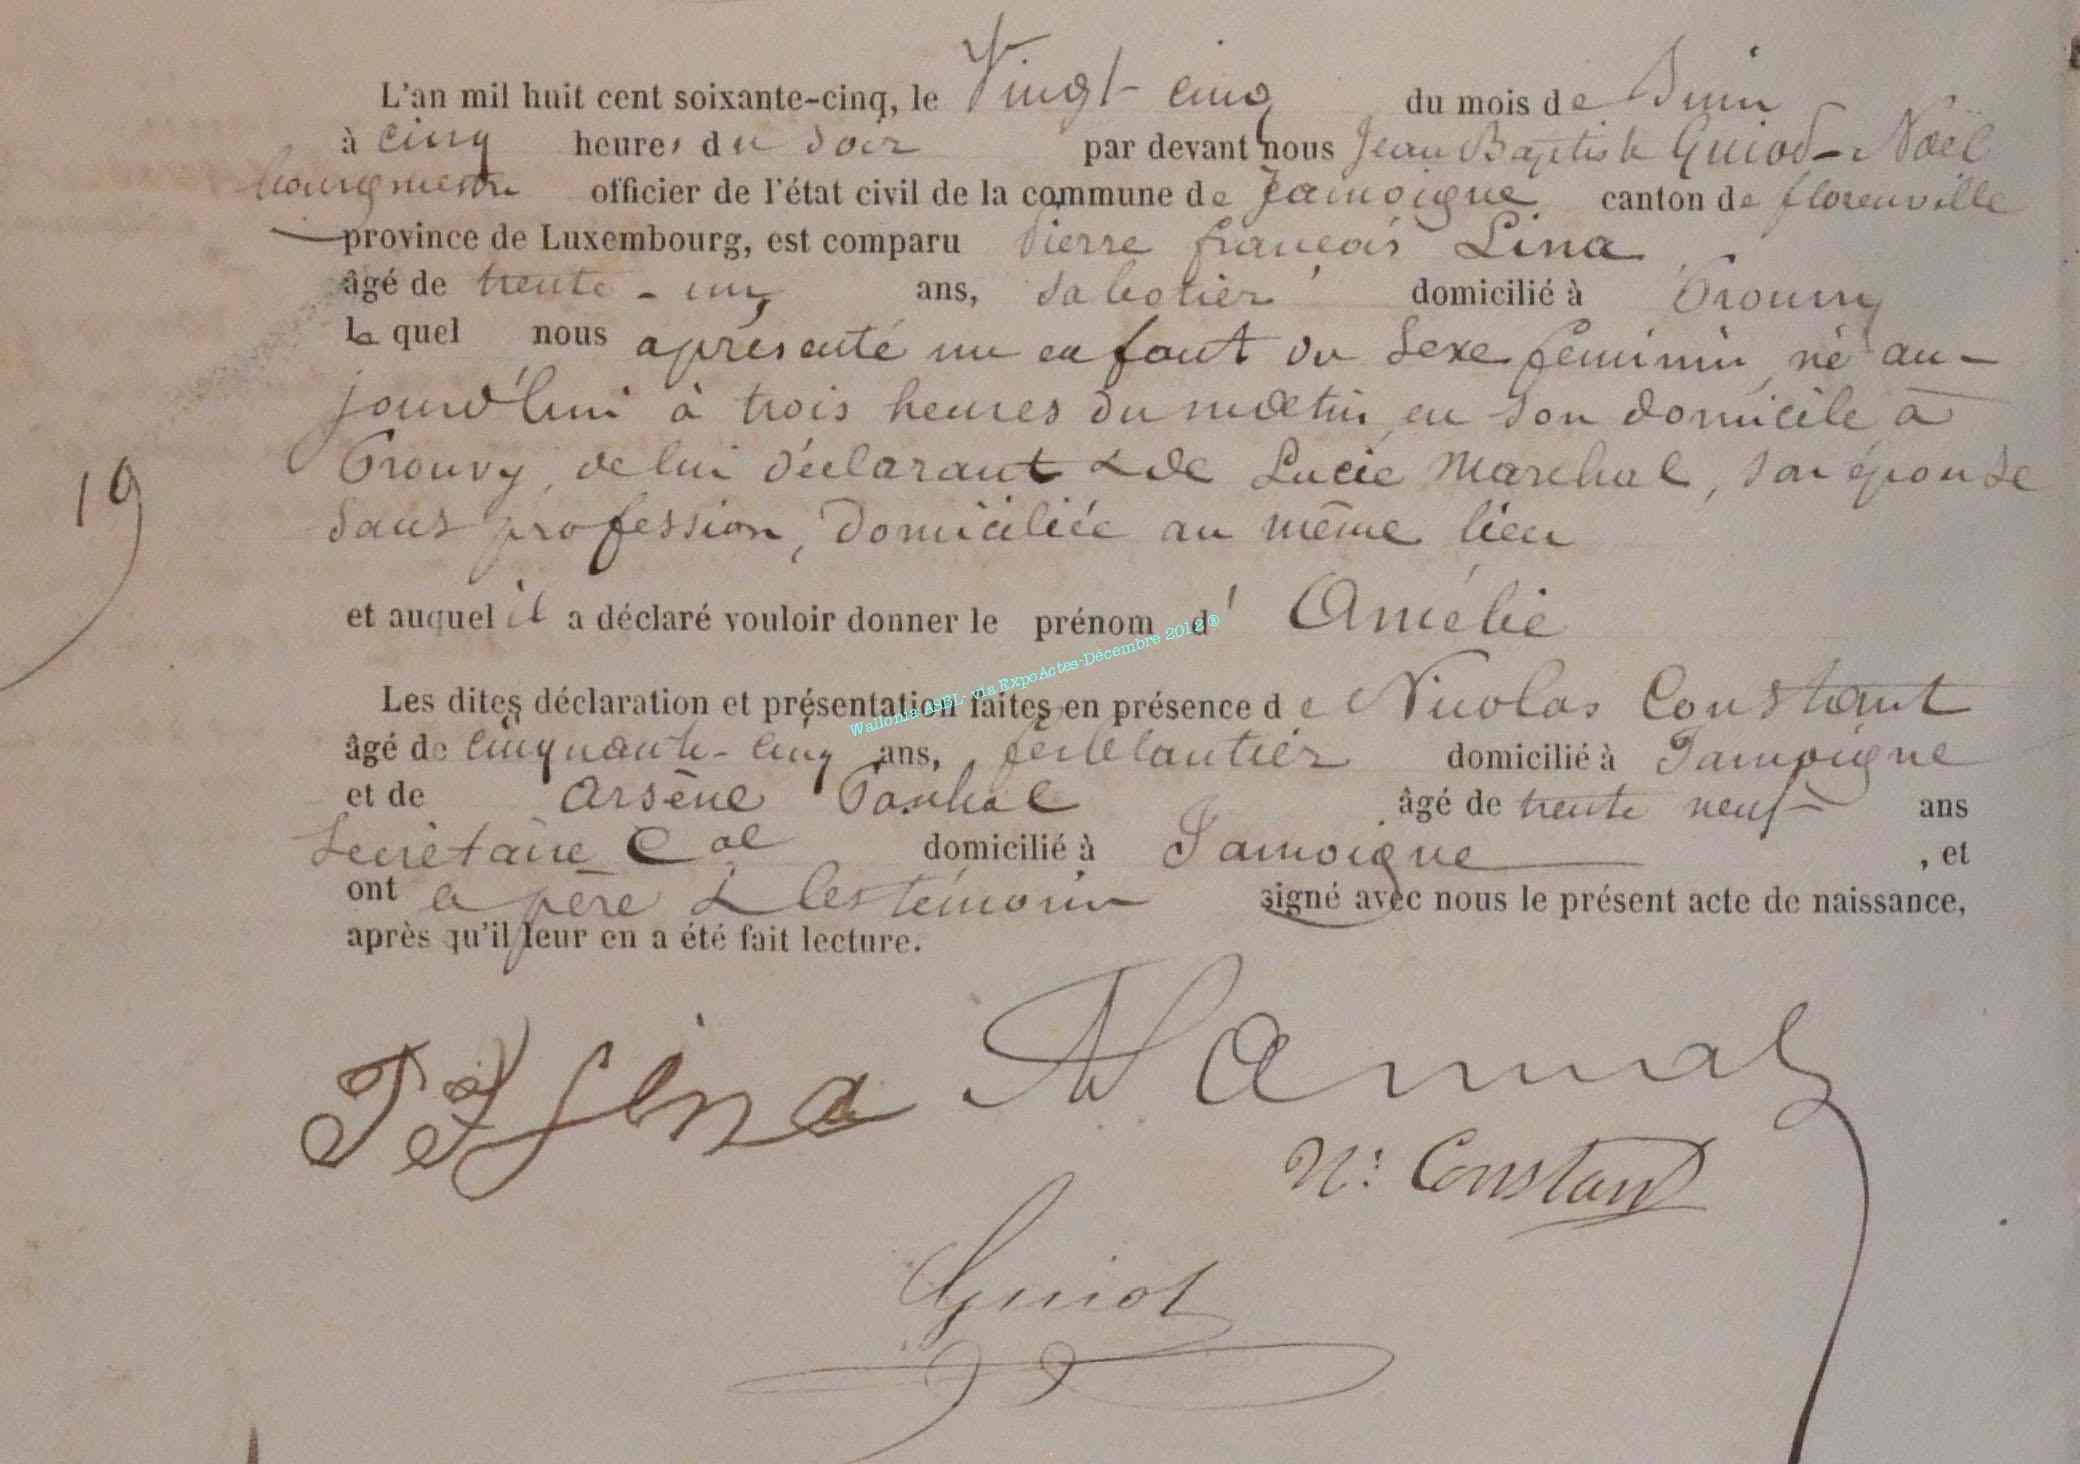 L'an mil huit cent soixante-cinq, le Vingt cinq du mois de Juin
à cinq heures du soir par devant nous Jean Baptiste Guiod-Noël
bourgmestre officier de l'état civil de la commune de Jamoigne canton de florenville
province de Luxembourg, est comparu Pierre françois Lina
âgé de trente-un ans, sabotier domicilié à Prouvy
le quel nous a présenté un enfant du sexe féminin, né au-
jourd'hui à trois heures du matin en son domicile à
Prouvy, de lui déclarant & de Lucie Marchal, son épouse
sans profession, domiciliée au même lieu
19
et auquel il a déclaré vouloir donner le prénom d' Amélie
Wallonia ASBL- via ExpoActes-Décembre 2012 ®
Les dites déclaration et présentation faites en présence de Nicolas Constant
âgé de cinquante-cinq ans, ferblantier domicilié à Jamoigne
et de Arsène âgé de trente neuf ans
Secrétaire Cal domicilié à Jamoigne , et
ont le père & les témoin signé avec nous le présent acte de naissance,
après qu'il leur en a été fait lecture.
PF Lina
N: Constant
Guiot